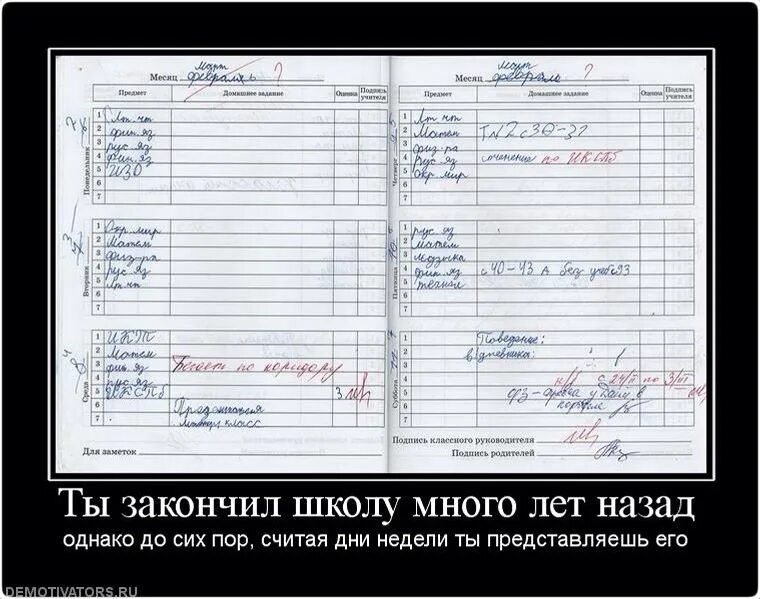 Месяц
март
февраль ?
Предмет Домашнее задание Оценка Подпись учителя
Понедельник
1 Лт. чт
2 фин. яз
3 рус. яз
4 фин. яз
5 ИЗО
6
7
Вторник
1 Окр. мир
2 Матем
3 физ-ра
4 рус. яз
5 Лт. чт
6
7
Среда
1 ИКТ
2 Матем
3 фин. яз Бегает по коридору
4 рус. яз
5 ИКСПб 3
6
7
класс
Для заметок
Месяц
март
февраль ?
Предмет Домашнее задание Оценка Подпись учителя
Четверг
1 Лт чт
2 Матем
3 физ-ра
4 Рус. яз сочинение по ИКСПб
5 Окр. мир
6
7
Пятница
1 рус. яз
2 Матем
3 музыка
4 фин. яз с 40-43 А без
5
6
7
Суббота
1 Поведение:
2 в дневника:
3
4 с 24/II по 3/III
5 в
6
7
Подпись классного руководителя
Подпись родителей
Ты закончил школу много лет назад
однако до сих пор, считая дни недели ты представляешь его
DEMOTIVATORS.RU